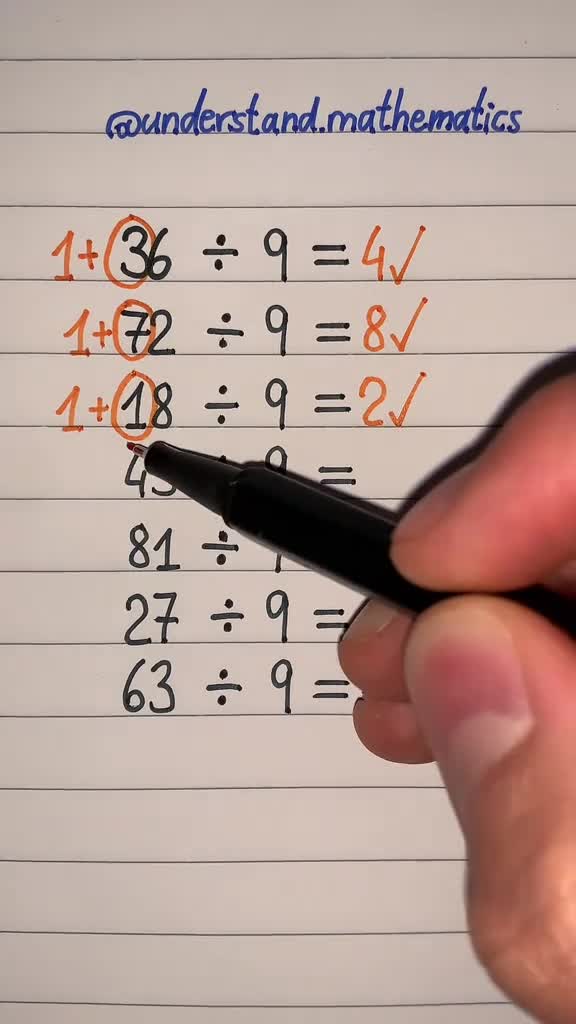 @understand.mathematics
1+36 ÷ 9 = 4✓
1+72 ÷ 9 = 8✓
1+18 ÷ 9 = 2✓
÷ 9 =
81 ÷
27 ÷ 9 =
63 ÷ 9 =